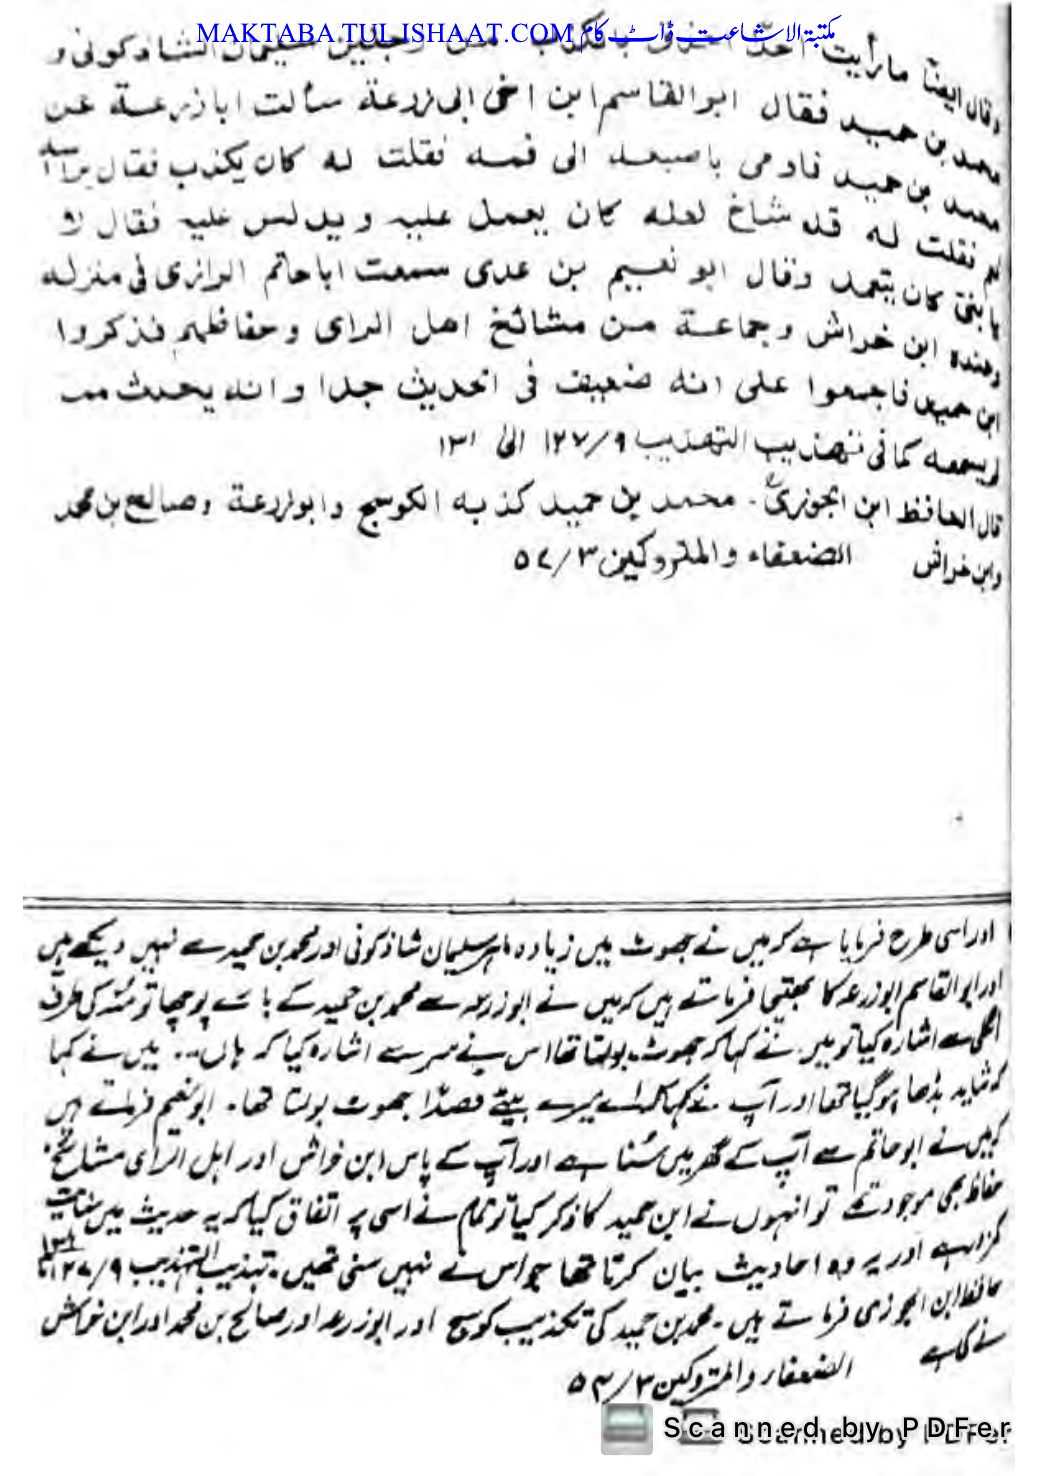 MAKTABA.TUL.ISHAAT.COM مکتبۃ الاشاعت ڈاٹ کام
وقال ایضا ما رأیت احدا بالکذب من رجلین سلیمان الشاذکونی و
محمد بن حمید فقال ابو القاسم ابن اخی ابی زرعة سألت ابا زرعة عن
محمد بن حمید فاومی باصبعه الی فمه فقلت له کان یکذب فقال برأسه
نعم فقلت له قد شاخ لعله کان یعمل علیه و یدلس علیه فقال لا
یا بنی کان یتعمد وقال ابو نعیم بن عدی سمعت ابا حاتم الرازی فی منزله
وعنده ابن خراش وجماعة من مشائخ اهل الرای وحفاظهم فذکروا
ابن حمید فاجمعوا علی انه ضعیف فی الحدیث جدا وانه یحدث مما
لم یسمعه کما فی تهذیب التهذیب ۱۲۷/۹ الی ۱۳۱
قال الحافظ ابن الجوزیؒ۔ محمد بن حمید کذبه الکوسج وابوزرعة وصالح بن محمد
وابن خراش الضعفاء والمتروکین ۵۴/۳
اور اسی طرح فرمایا ہے کہ میں نے جھوٹ میں زیادہ ماہر سلیمان شاذکونی اور محمد بن حمید سے نہیں دیکھے ہیں
اور ابو القاسم ابوزرعہ کا بھتیجا فرماتے ہیں کہ میں نے ابوزرعہ سے محمد بن حمید کے بارے پوچھا تو منہ کی طرف
انگلی سے اشارہ کیا تو میں نے کہا کہ جھوٹ بولتا تھا اس نے سر سے اشارہ کیا کہ ہاں۔۔ میں نے کہا
کہ شاید بڈھا ہوگیا تھا اور آپ نے کہا کہ اے میرے بیٹے قصدًا جھوٹ بولتا تھا۔ ابو نعیم فرماتے ہیں
کہ میں نے ابو حاتم سے آپ کے گھر میں سُنا ہے اور آپ کے پاس ابن خراش اور اہل الرّای مشائخ،
حفاظ بھی موجود تھے تو انہوں نے ابن حمید کا ذکر کیا تو تمام نے اسی پر اتفاق کیا کہ یہ حدیث میں نہایت
کمزور ہے اور یہ وہ احادیث بیان کرتا تھا جو اس نے نہیں سنی تھیں۔ تہذیب التہذیب ۱۲۷/۹ تا ۱۳۱
حافظ ابن الجوزی فرماتے ہیں۔ محمد بن حمید کی تکذیب کوسج اور ابوزرعہ اور صالح بن محمد اور ابن خراش
نے کی ہے الضعفاء والمتروکین ۵۴/۳
Scanned by PDFer
Scanned by PDFer